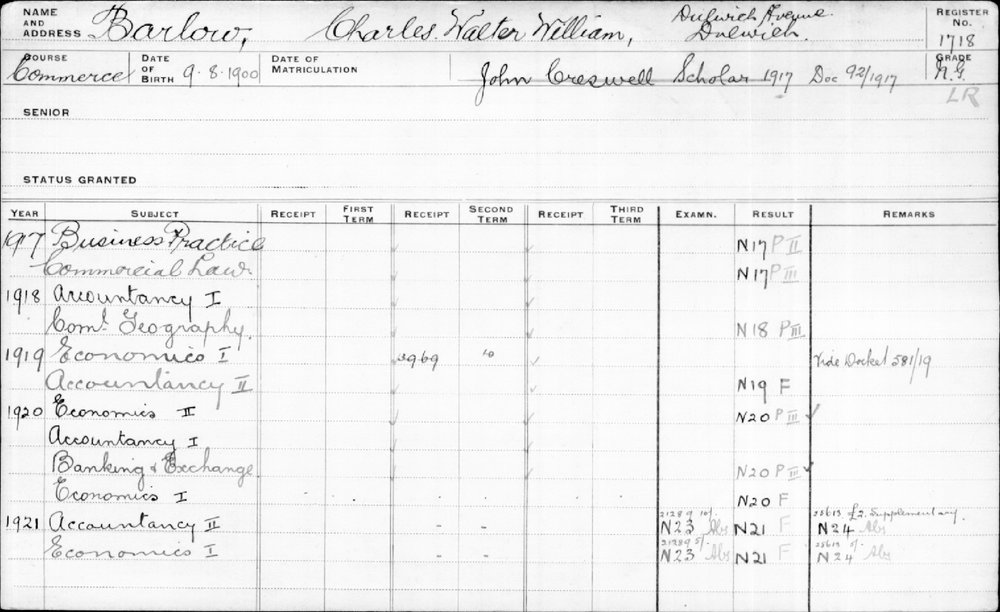 NAME AND ADDRESS Barlow, Charles Walter William, Dulwich Avenue Dulwich. REGISTER No. 1718
COURSE Commerce DATE OF BIRTH 9.8.1900 DATE OF MATRICULATION John Creswell Scholar 1917 Doc 92/1917 GRADE N.G.
LR
SENIOR
STATUS GRANTED
YEAR SUBJECT RECEIPT FIRST TERM RECEIPT SECOND TERM RECEIPT THIRD TERM EXAMN. RESULT REMARKS
1917 Business Practice N17 P II
Commercial Law N17 P III
1918 Accountancy I
Coml. Geography. N18 P III
1919 Economics I 3969 10 Vide Docket 581/19
Accountancy II N19 F
1920 Economics II N20 P III
Accountancy I
Banking & Exchange N20 P III
Economics I N20 F
21289 10/. 25613 £2. Supplementary.
1921 Accountancy II - - N23 Abs N21 F N24 Abs
21289 5/. 25613 5/.
Economics I - - N23 Abs N21 F N24 Abs